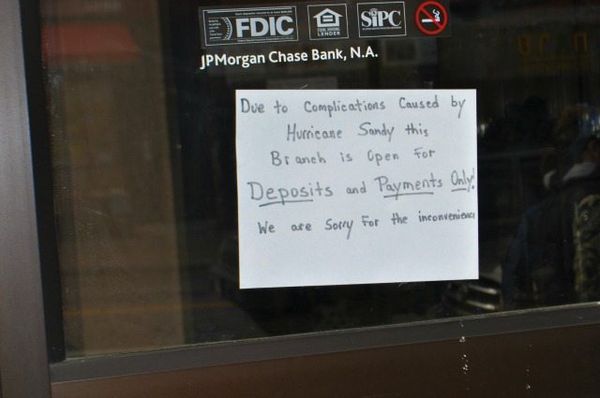 FDIC
LENDER
SiPC
JPMorgan Chase Bank, N.A.
Due to Complications Caused by
Hurricane Sandy this
Branch is Open For
Deposits and Payments Only!
We are Sorry For the inconvenience